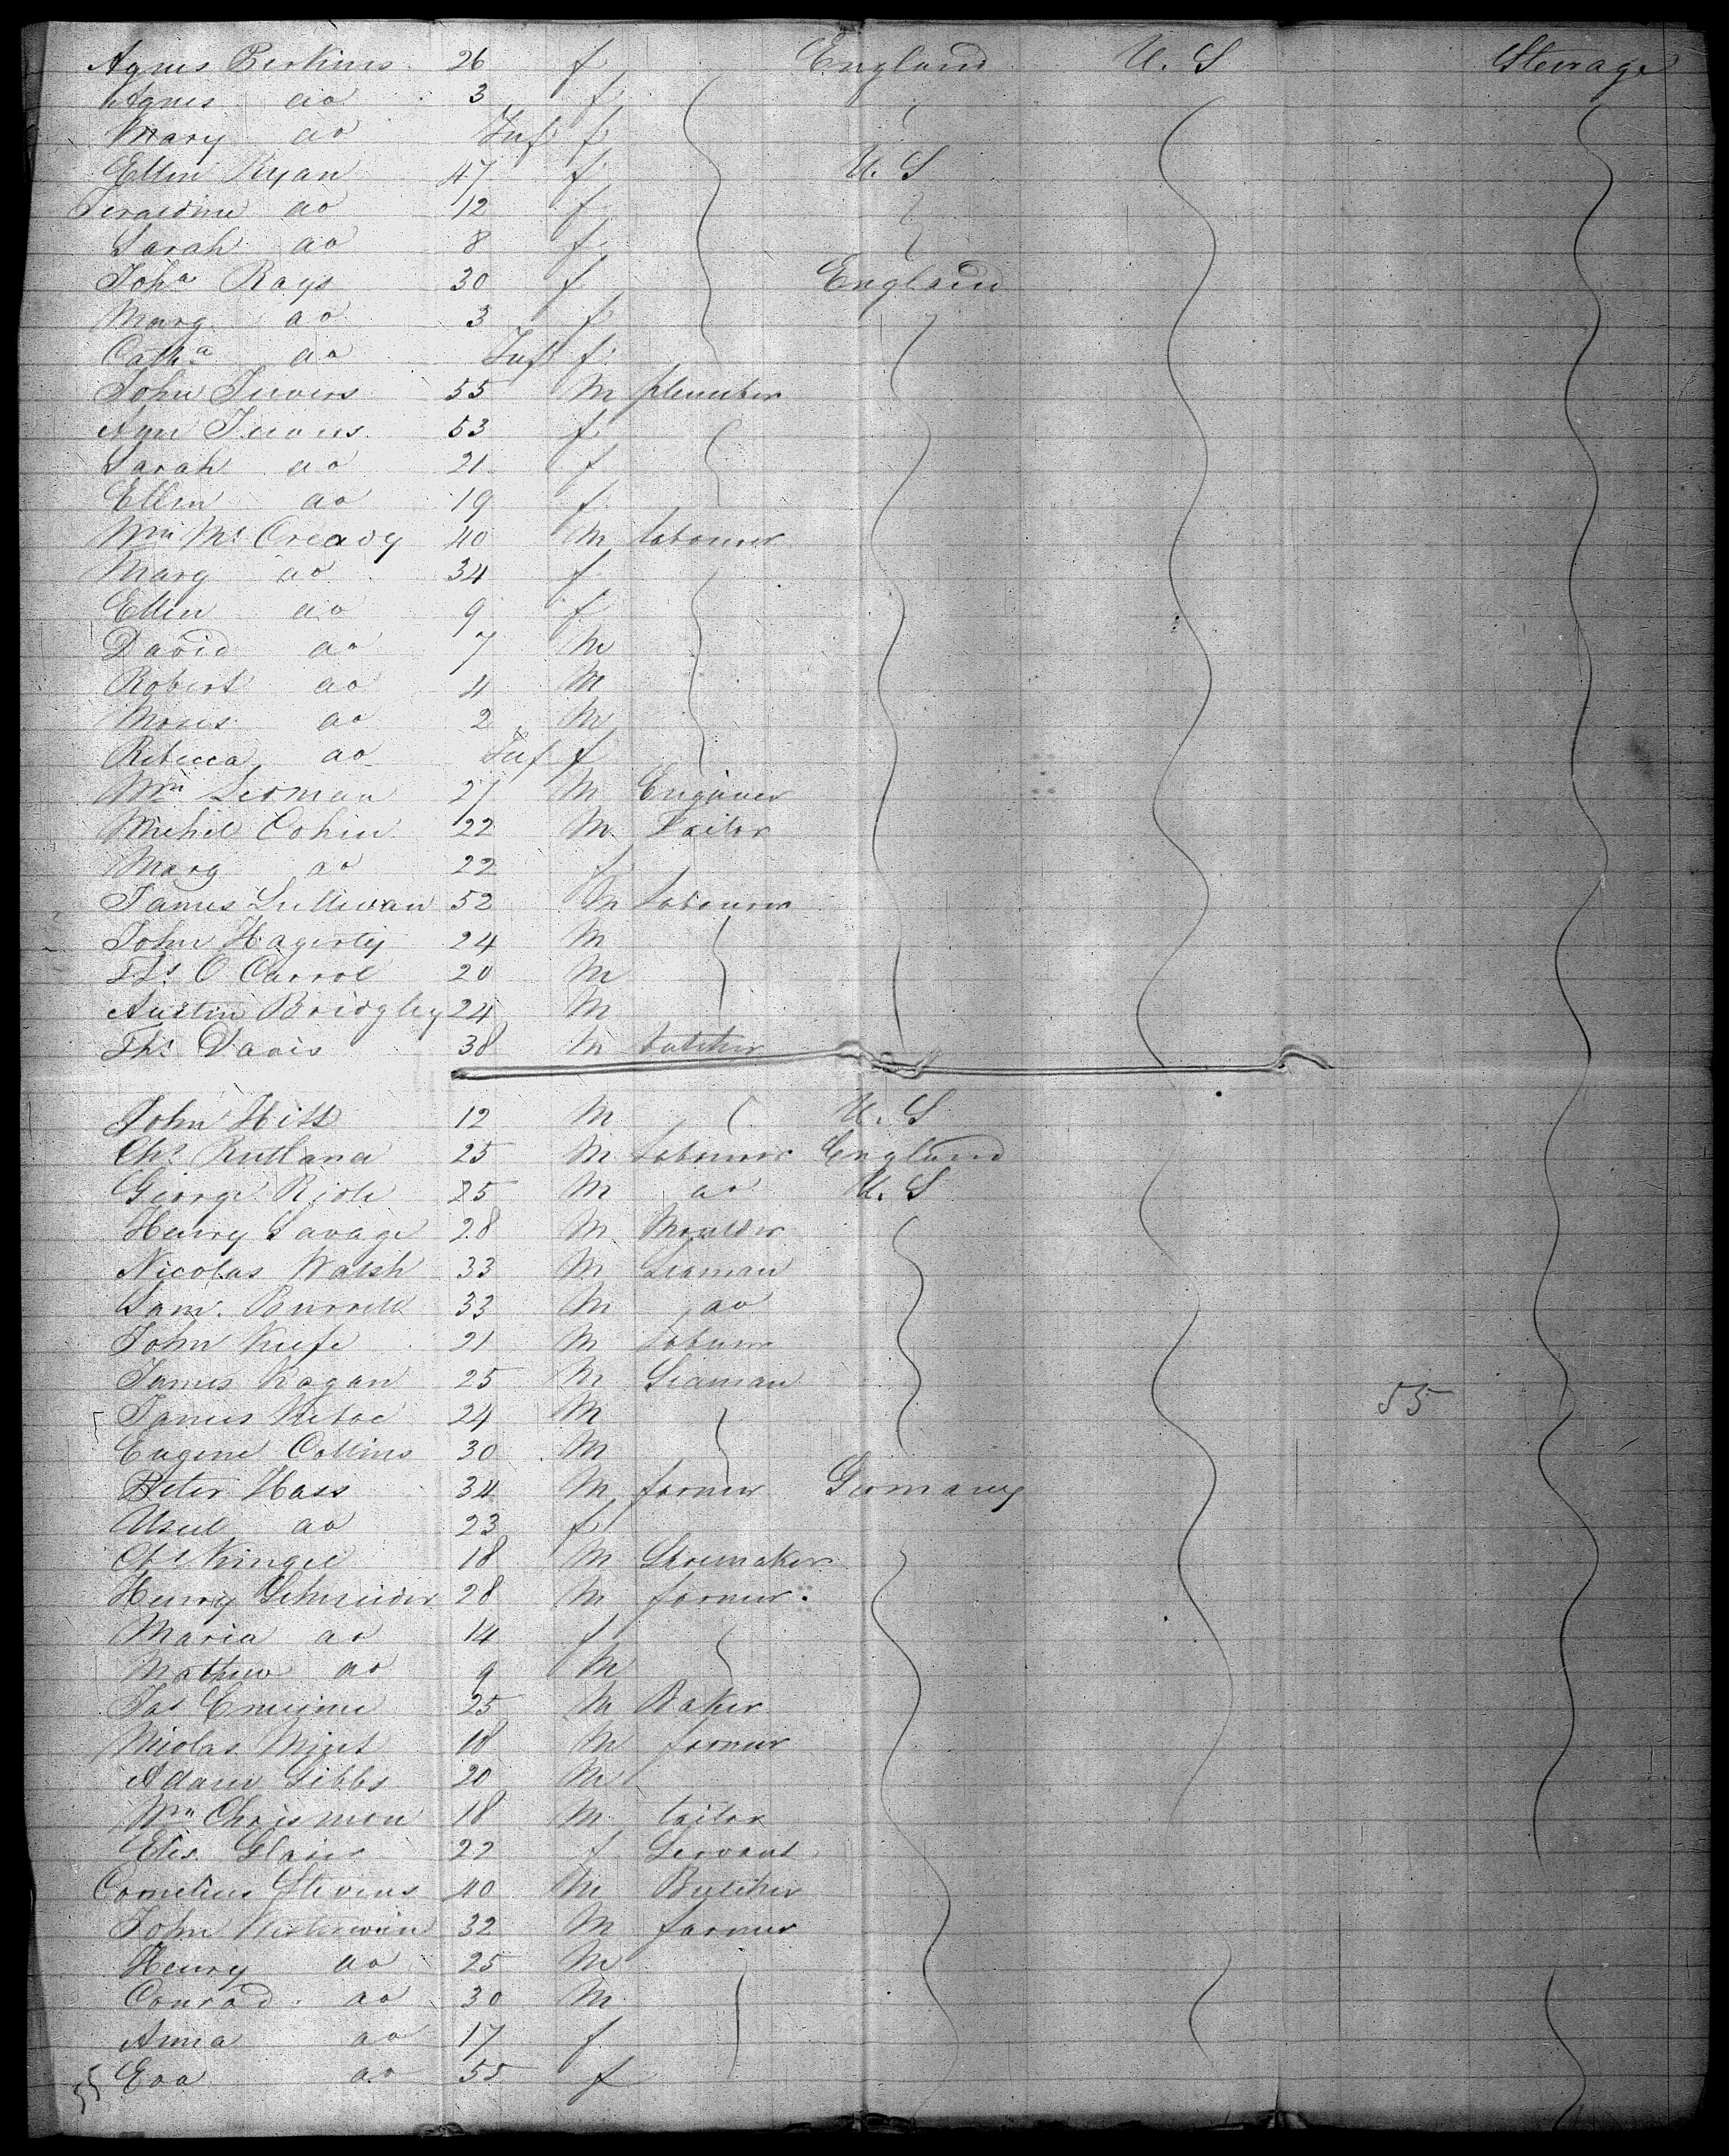 Agnes Perkins 26 f England U. S Steerage
Agnes do 3 f
Mary do Inf f
Ellen Ryan 47 f U. S
Geraldine do 12 f
Sarah do 8 f
Joha Rays 30 f England
Marg do 3 f
Catha do Inf f
John Jeevers 55 M plumber
Ann 53 f
Sarah do 21 f
Ellen do 19 f
Wm Mc Creavy 40 M Labourer
Marg do 34 f
Ellen do 9 f
David do 7 M
Robert do 4 M
Moses do 2 M
Rebecca do Inf f
Wm Serman 27 M Engineer
Michel Cohen 22 M Tailor
Marg do 22 f
James Sullivan 52 M Labourer
John Hagerty 24 M
Ths O Carrol 20 M
Austin Bridgley 24 M
Ths Davis 38 M butcher
John Hill 12 M U. S
Chs Rutland 25 M Labourer England
George 25 M do U. S
Henry Savage 28 M Moulder
Nicolas Walsh 33 M Seaman
Saml Burrell 33 M do
John Keefe 21 M Labourer
James Kagan 25 M Seaman 55
James 24 M
Eugene Collins 30 M
Peter Hass 34 M farmer Germany
do 23 f
18 M Shoemaker
Henry Schneider 28 M farmer
Maria do 14 f
Mathew do 9 M
25 M Baker
18 M farmer
Adam Gibbs 20 M
Wm Chrismon 18 M tailor
Elis Glais 22 f Servant
Cornelius Stevens 40 M Butcher
John 32 M farmer
Henry do 25 M
Conrad do 30 M
Anna do 17 f
55 Eva do 55 f